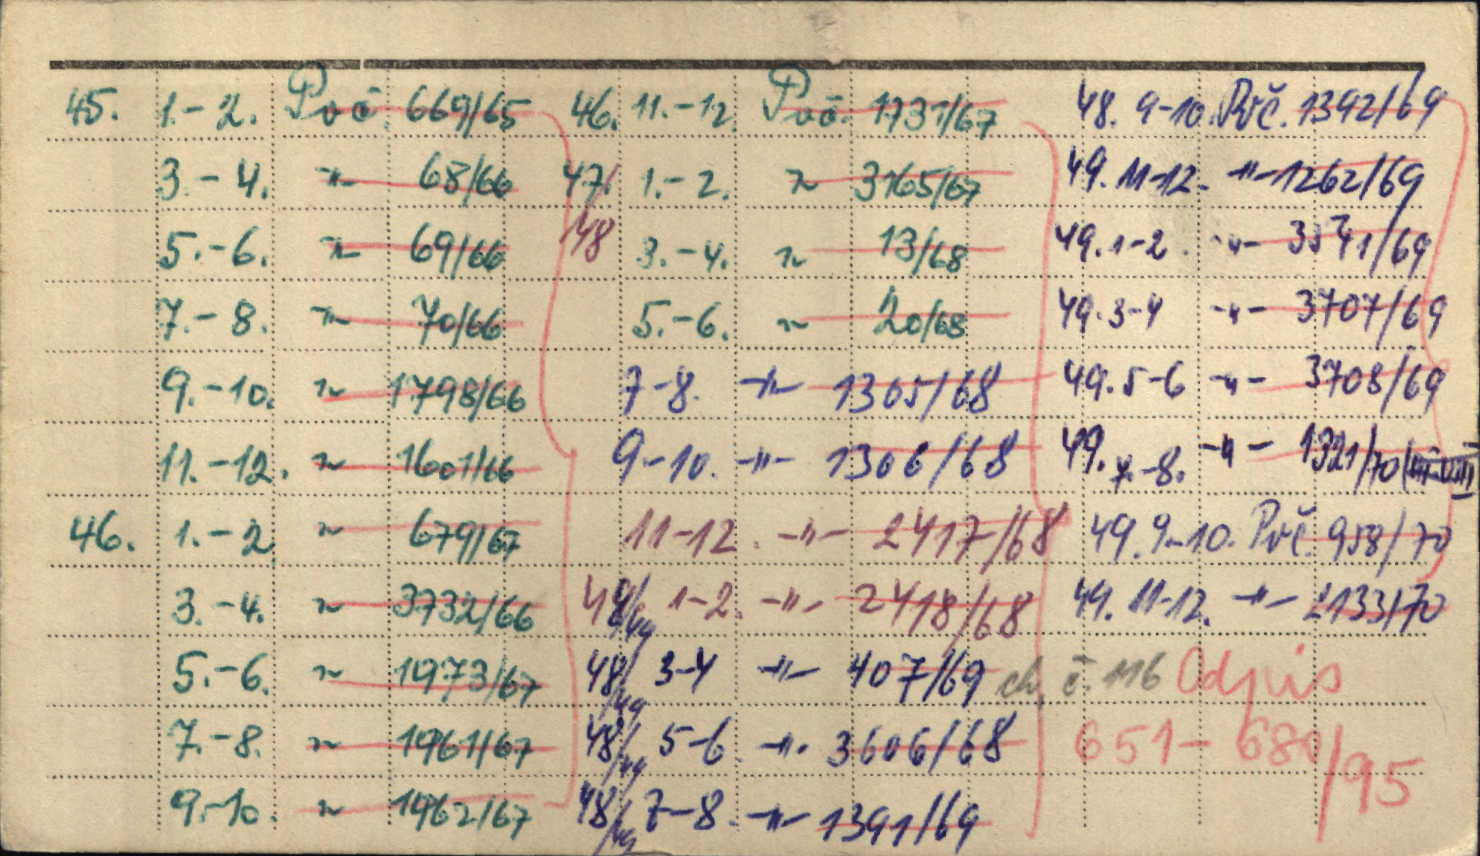 45. 1.-2. Poč. 669/65 46. 11.-12. Poč. 1731/67 48. 9-10. Pvč. 1392/69
3.-4. -"- 68/66 47/ 1.-2. -"- 3165/67 49. 11-12. -"- 1262/69
5.-6. -"- 69/66 48 3.-4. -"- 13/68 49. 1-2. -"- 3541/69
7.-8. -"- 70/66 5.-6. -"- 20/68 49. 3-4 -"- 3707/69
9.-10. -"- 1798/66 7-8. -"- 1305/68 49. 5-6 -"- 3708/69
11.-12. -"- 1601/66 9-10. -"- 1306/68 49. 7.-8. -"- 1321/70
46. 1.-2 -"- 679/67 11-12. -"- 2417/68 49. 9-10. Pvč. 958/70
3.-4. -"- 3732/66 48/49 1-2. -"- 2418/68 49. 11-12. -"- 2133/70
5.-6. -"- 1973/67 48/49 3-4 -"- 407/69 ch. č. 116 Odpis
7.-8. -"- 1961/67 48/49 5-6 -"- 3606/68 651-680/95
9.-10. -"- 1962/67 48/49 7-8. -"- 1391/69